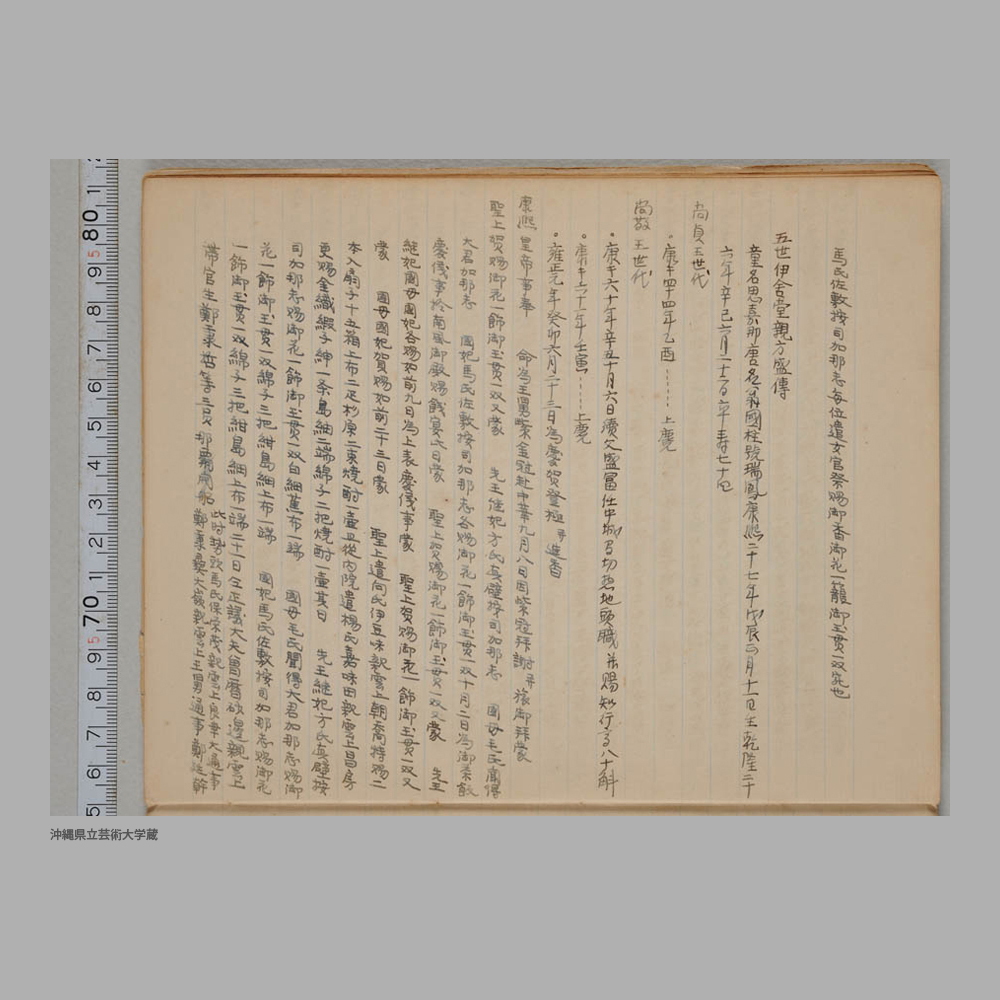 馬氏佐敷按司加那志每位遣女官祭賜御香御花一籠御玉貫一双完也
五世伊舍堂親方盛傳
童名思嘉那唐名翁國柱號瑞鳳康熙二十七年戊辰 月十一日生乾隆二十
六年辛巳六月二十 日卒寿七十四
尚貞王世代
・康キ四十四年乙酉……上薨
尚敬王世代
・康キ六十年辛丑十月六日續父盛富仕中城 切惣地頭職並賜知行高八十斛
・康キ六十一年壬寅……上薨
・雍正元年癸卯六月二十三日為慶賀登極 進香
康熙皇帝事奉 命為王舅 紫金冠赴中華九月八日因紫冠拜謝 旅御拜蒙
聖上賀賜御花一飾御玉貫一双又蒙 先王继妃方氏真壁按司加那志 國母毛氏聞得
大君加那志 國妃馬氏佐敷按司加那志各賜御花一飾御玉貫一双十月二日為御茶飯
慶儀事於南風御殿賜餞宴此日蒙 聖上賀賜御花一飾御玉貫一双又蒙 先王
继妃國母國妃各賜如前九日為上表慶儀事蒙 聖上賀賜御花一飾御玉貫一双又
蒙 國母國妃賀賜如前二十三日蒙 聖上遣向氏伊豆味親雲上朝喬特賜二
本入扇子十五箱上布二疋杉原二束燒酎一壷且從内院遣楊氏嘉味田親雲上昌房
更賜金織緞子紳一条島紬二端綿子二把燒酎一壷其日 先王继妃方氏真壁按
司加那志賜御花一飾御玉貫一双白細蕉布一端 國母毛氏聞得大君加那志賜御
花一飾御玉貫一双綿子三把紺島細上布一端 國妃馬氏佐敷按司加那志賜御花
一飾御玉貫一双綿子三把紺島細上布一端二十一日仝正議大夫曾暦砂邊親雲上
帶官生鄭秉哲等三員那覇開船 此時勢頭馬氏保栄茂親雲上良 大通事
鄭 大嶺親雲上王舅通事鄭廷幹
沖縄県立芸術大学蔵